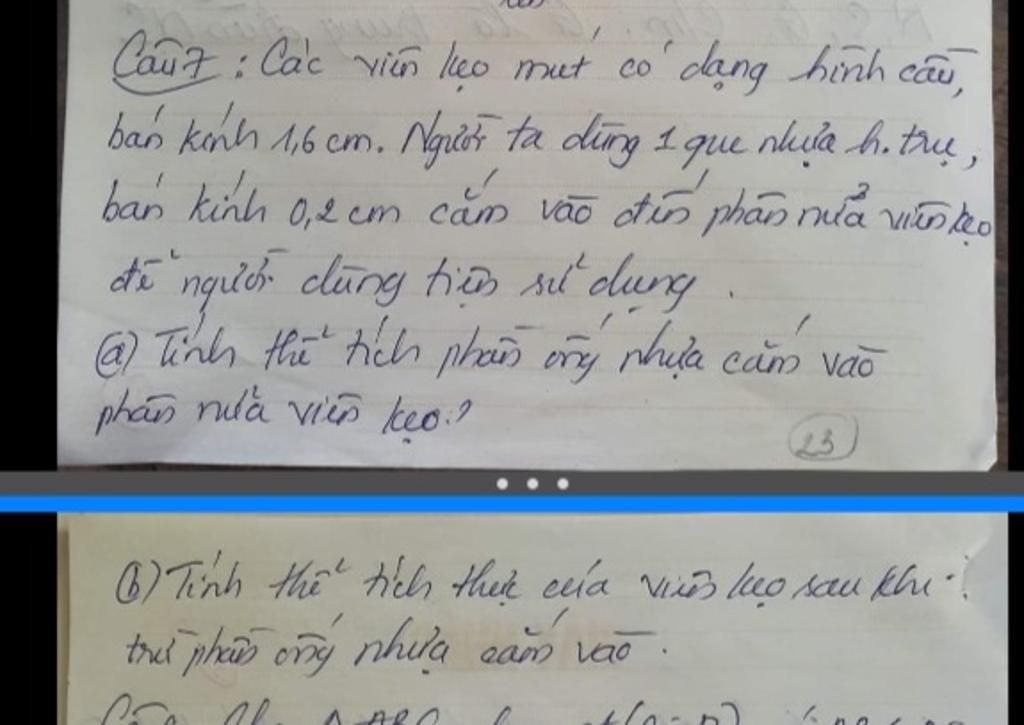 Câu 7: Các viên kẹo mút có dạng hình cầu,
bán kính 1,6 cm. Người ta dùng 1 que nhựa h. trụ,
bán kính 0,2 cm cắm vào đến phân nửa viên kẹo
để người dùng tiện sử dụng.
a) Tính thể tích phần ống nhựa cắm vào
phân nửa viên kẹo?
23
b) Tính thể tích thực của viên kẹo sau khi
trừ phần ống nhựa cắm vào.